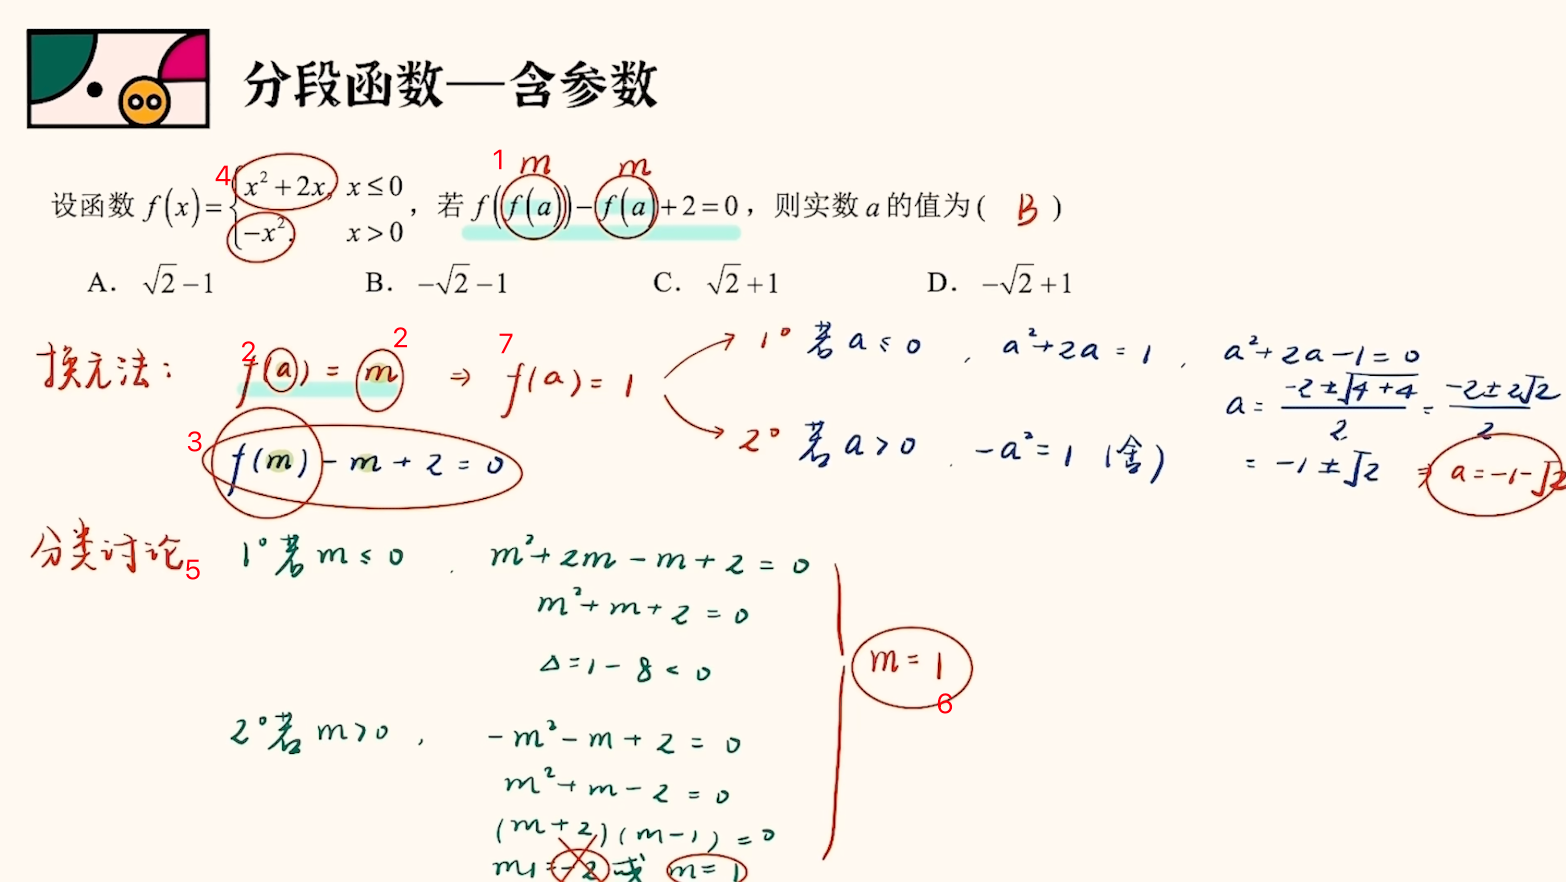 分段函数—含参数
4 1 m m
设函数 f(x)={x²+2x, x≤0 -x², x>0 , 若 f(f(a))-f(a)+2=0, 则实数 a 的值为( B )
A. √2-1 B. -√2-1 C. √2+1 D. -√2+1
换元法: 2 f(a) = m 2 ⇒ 7 f(a) = 1
1° 若 a ≤ 0 , a²+2a = 1 , a²+2a-1=0
a = (-2±√(4+4))/2 = (-2±2√2)/2
= -1±√2 ⇒ a=-1-√2
2° 若 a>0 . -a²=1 (舍)
3 f(m) - m + 2 = 0
分类讨论 5 1° 若 m ≤ 0 . m²+2m-m+2=0
m²+m+2=0
Δ=1-8<0
m=1
6
2° 若 m>0 , -m²-m+2=0
m²+m-2=0
(m+2)(m-1)=0
m1=-2 或 m=1